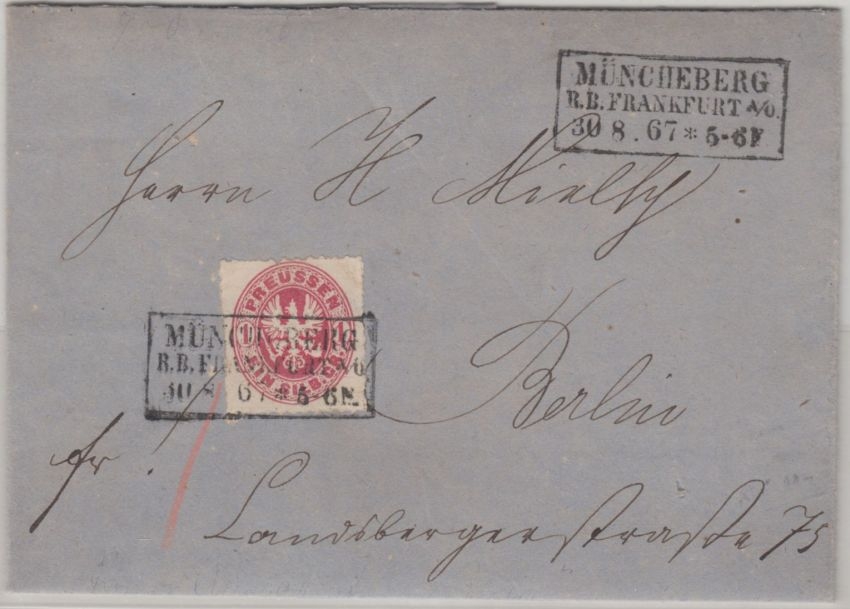 MÜNCHEBERG
R.B. FRANKFURT a/O.
30 8. 67 * 5-6 N
Herrn H Mielsch
PREUSSEN
1 1
EIN SILB. GR.
MÜNCHEBERG
R.B. FRANKFURT a/O
30 8 67 * 5-6 N.
Berlin
fr.
Landsbergerstraße 75